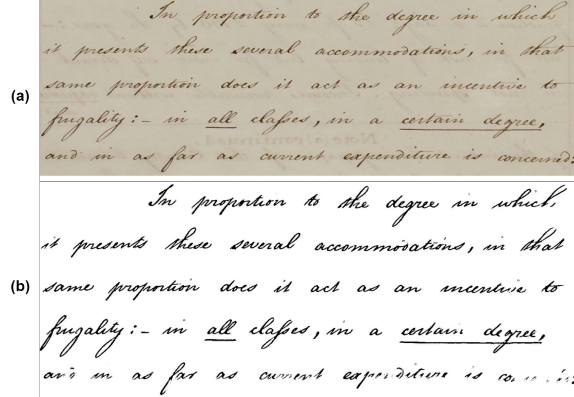 (a)
In proportion to the degree in which
it presents these several accommodations, in that
same proportion does it act as an incentive to
frugality:- in all classes, in a certain degree,
and in as far as current expenditure is concerned:
(b)
In proportion to the degree in which,
it presents these several accommodations, in that
same proportion does it act as an incentive to
frugality:- in all classes, in a certain degree,
and in as far as current expenditure is